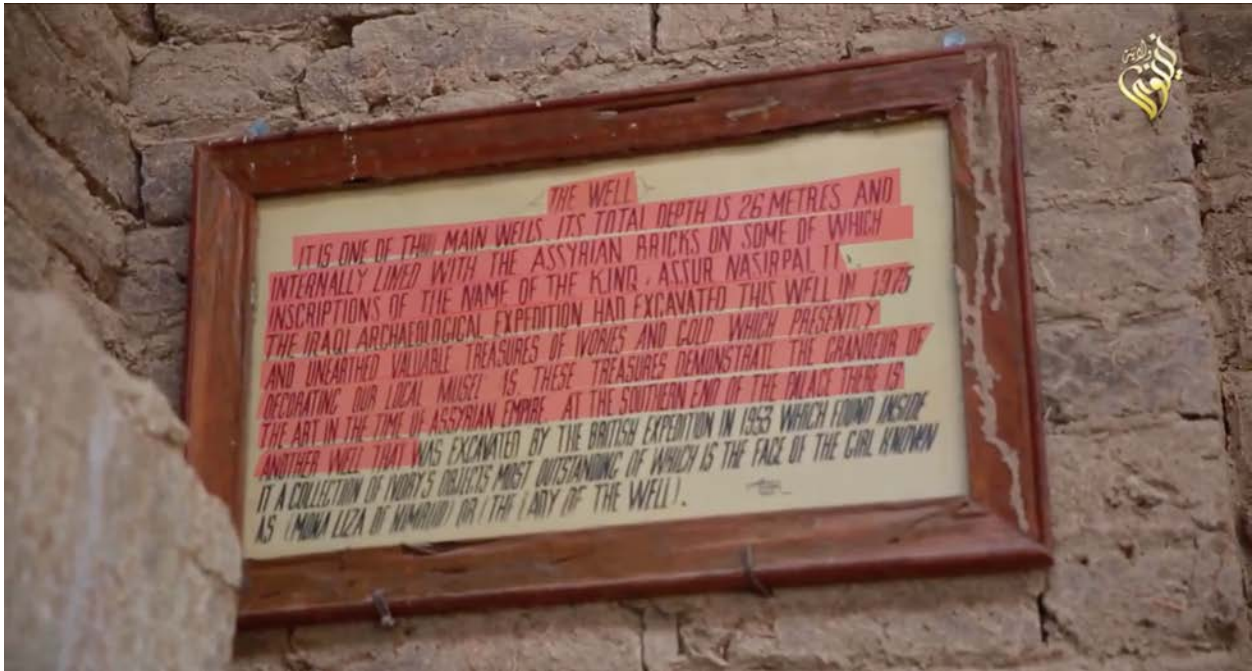 THE WELL
IT IS ONE OF THI MAIN WELLS. ITS TOTAL DEPTH IS 26 METRES AND
INTERNALLY LINED WITH THE ASSYRIAN BRICKS ON SOME OF WHICH
INSCRIPTIONS OF THE NAME OF THE KINQ. ASSUR NASIRPAL II.
THE IRAQI ARCHAEOLOGICAL EXPEDITION HAD EXCAVATED THIS WELL IN 1975
AND UNEARTHED VALUABLE TREASURES OF IVORIES AND GOLD WHICH PRESENTLY
DECORATING OUR LOCAL IS THESE TREASURES DEMONSTRATE THE GRANDEUR OF
THE ART IN THE TIME OF ASSYRIAN EMPIRE AT THE SOUTHERN END OF THE PALACE THERE IS
ANOTHER WELL THAT WAS EXCAVATED BY THE BRITISH EXPEDITION IN 1953 WHICH FOUND INSIDE
IT A COLLECTION OF IVORY'S OBJECTS MOST OUTSTANDING OF WHICH IS THE FACE OF THE GIRL KNOWN
AS (MONA LIZA OF NIMRUD) OR (THE LADY OF THE WELL).
ولاية
نينوى